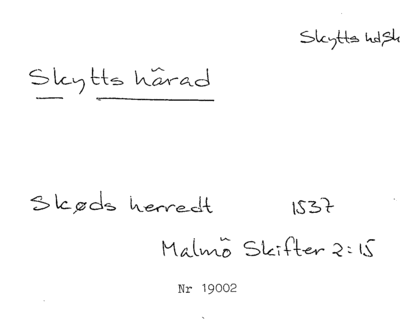 Skytts hd, Sk
Skytts härad
Skøds herredt 1537
Malmö Skifter 2:15
Nr 19002